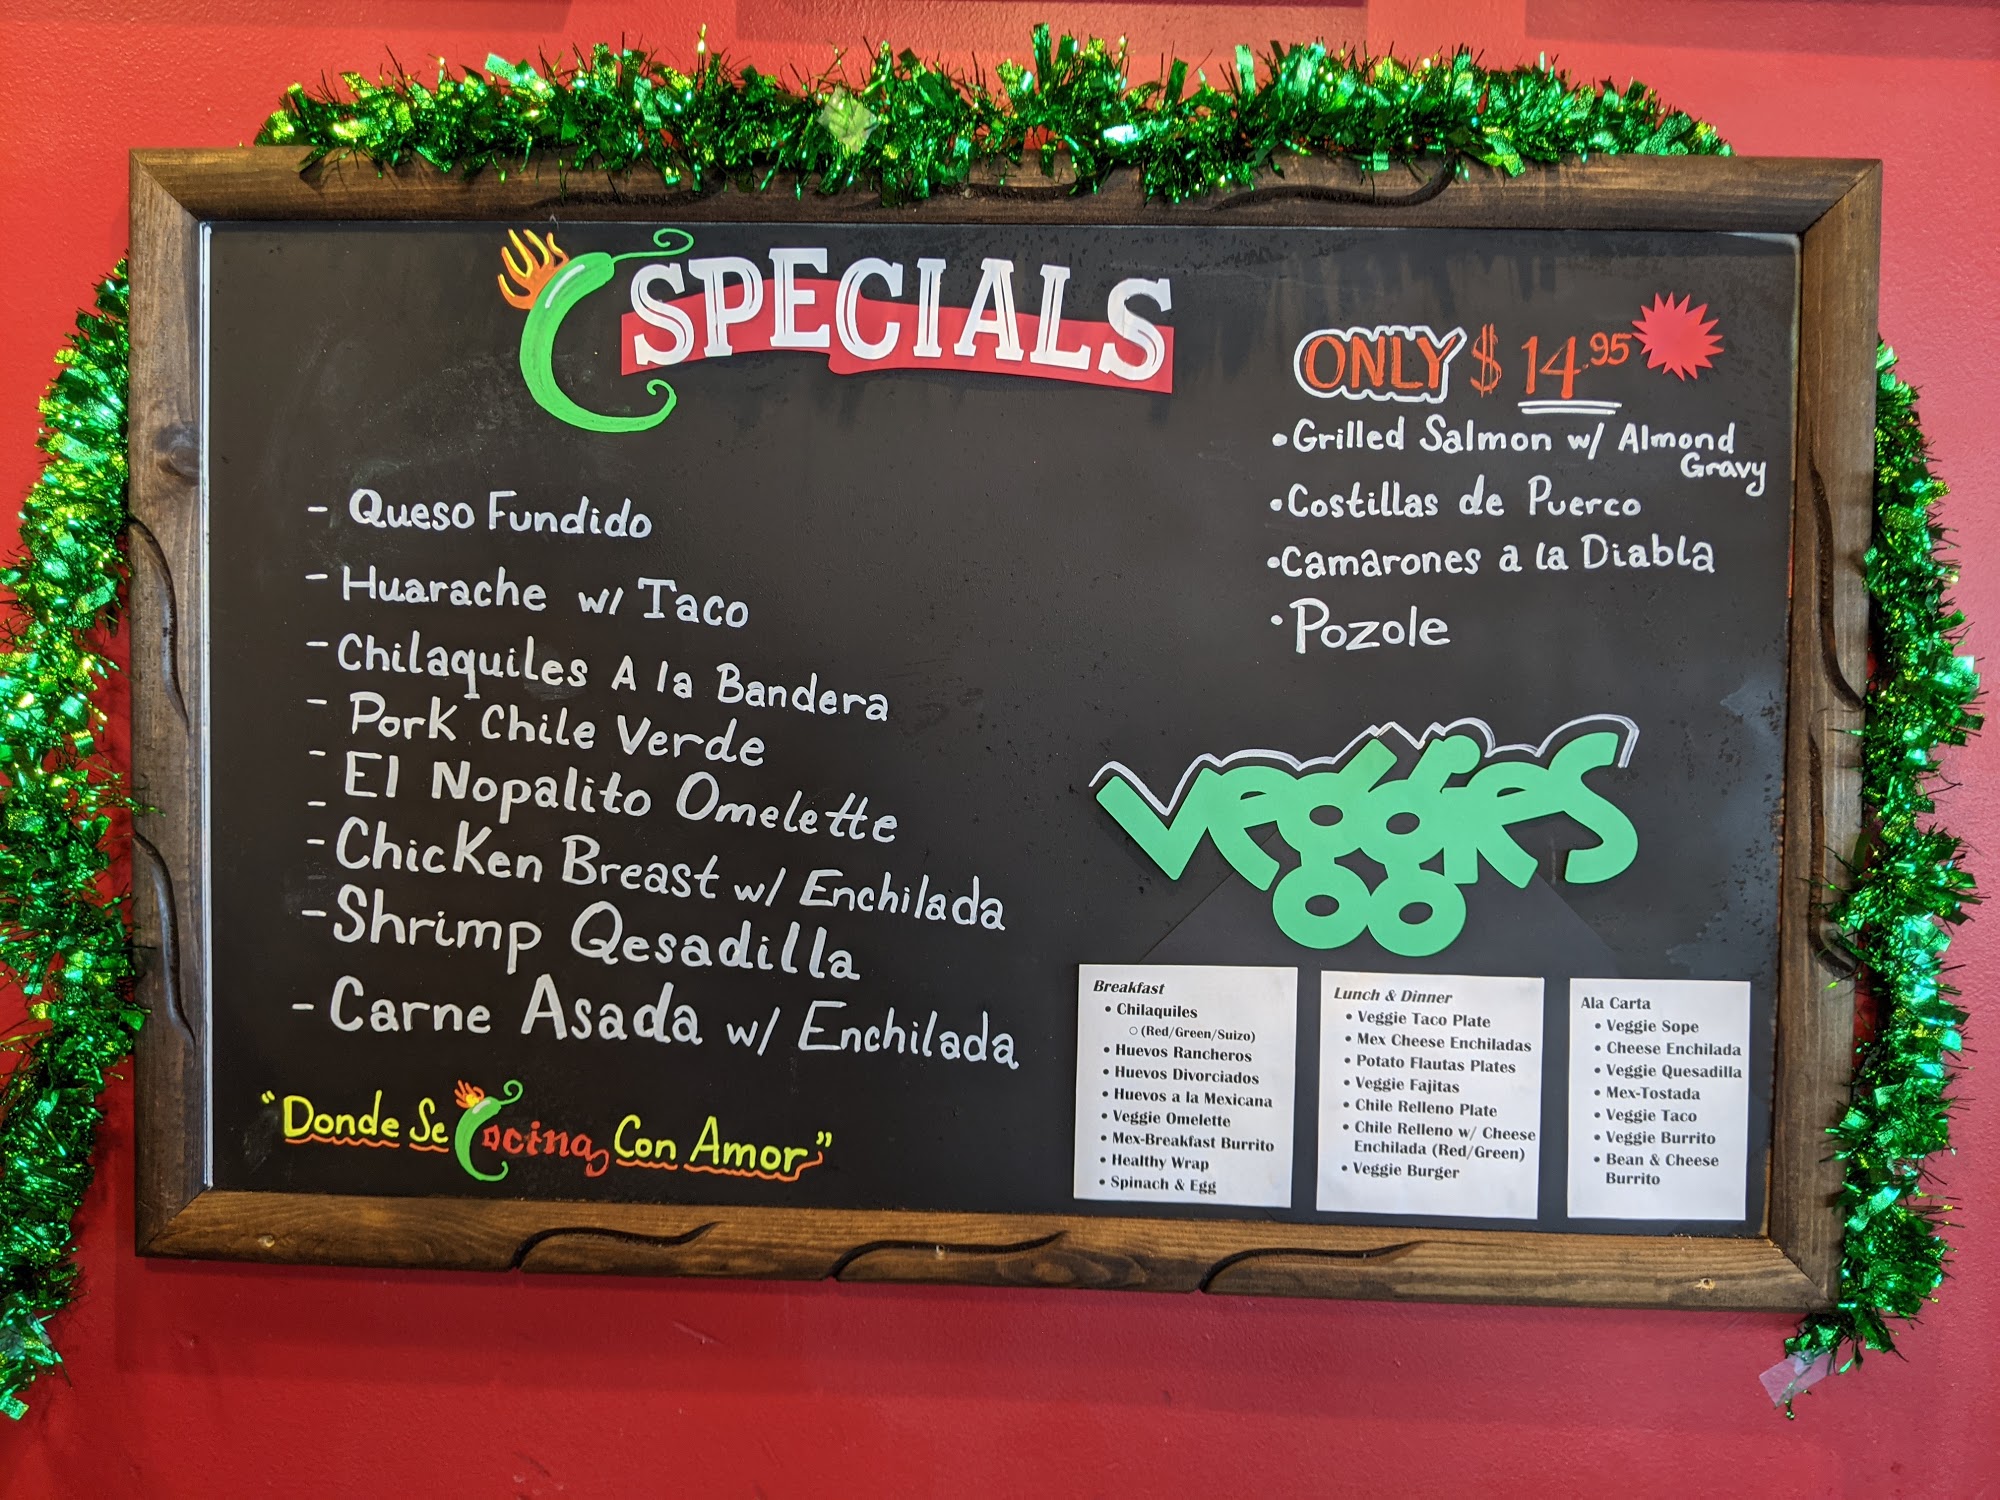 SPECIALS
- Queso Fundido
- Huarache w/ Taco
- Chilaquiles A la Bandera
- Pork Chile Verde
- El Nopalito Omelette
-
- Chicken Breast w/ Enchilada
- Shrimp Qesadilla
- Carne Asada w/ Enchilada
"Donde Se Cocina Con Amor"
ONLY $ 14.95
• Grilled Salmon w/ Almond
Gravy
• Costillas de Puerco
• Camarones a la Diabla
• Pozole
veggies
Breakfast
• Chilaquiles
○ (Red/Green/Suizo)
• Huevos Rancheros
• Huevos Divorciados
• Huevos a la Mexicana
• Veggie Omelette
• Mex-Breakfast Burrito
• Healthy Wrap
• Spinach & Egg
Lunch & Dinner
• Veggie Taco Plate
• Mex Cheese Enchiladas
• Potato Flautas Plates
• Veggie Fajitas
• Chile Relleno Plate
• Chile Relleno w/ Cheese
Enchilada (Red/Green)
• Veggie Burger
Ala Carta
• Veggie Sope
• Cheese Enchilada
• Veggie Quesadilla
• Mex-Tostada
• Veggie Taco
• Veggie Burrito
• Bean & Cheese
Burrito